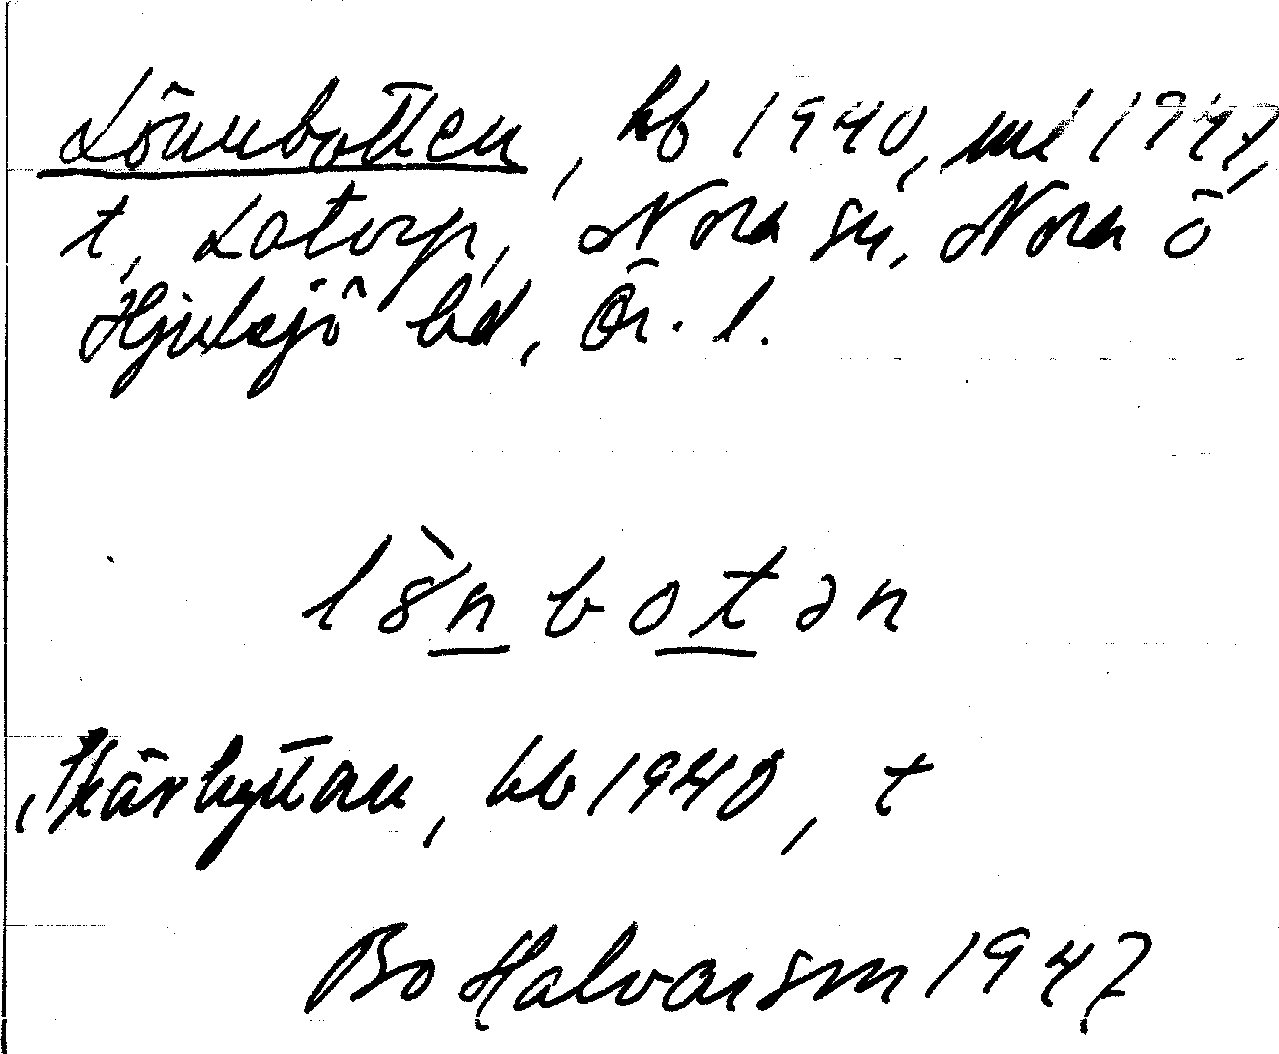 Lönnbotten, hf 1940, ml 1947,
t, Latorp, Nora sn, Nora o
Hjulsjö bd, Ör. l.
lö̀nbotən
Skärhyttan, hb 1940, t
Bo Halvarson 1947